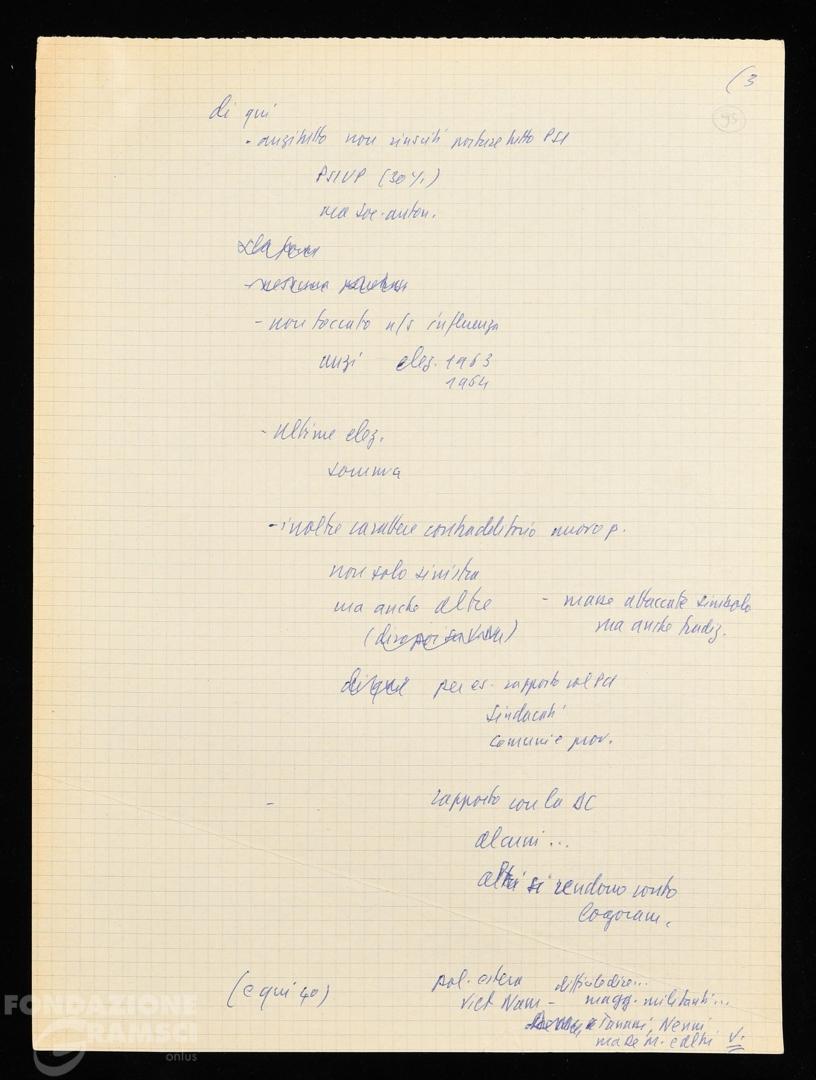 (3
95
di qui
- anzitutto non riusciti portare tutto PSI
PSIUP (30%)
ma soc. auton.
- non toccato n/s influenza
anzi eleg. 1963
1964
- ultime elez.
somma
- inoltre carattere contraddittorio nuovo p.
non solo sinistra
ma anche altre - masse attaccate simbolo
ma anche tradiz.
di qui per es. rapporto col PCI
sindacati
comuni e prov.
- rapporto con la DC
alcuni...
altri si rendono conto
logoram.
(e qui 40) pol. estera difficile dire...
Viet Nam - magg. militanti...
e Tanassi, Nenni
ma De M. e altri V.
FONDAZIONE
GRAMSCI
onlus